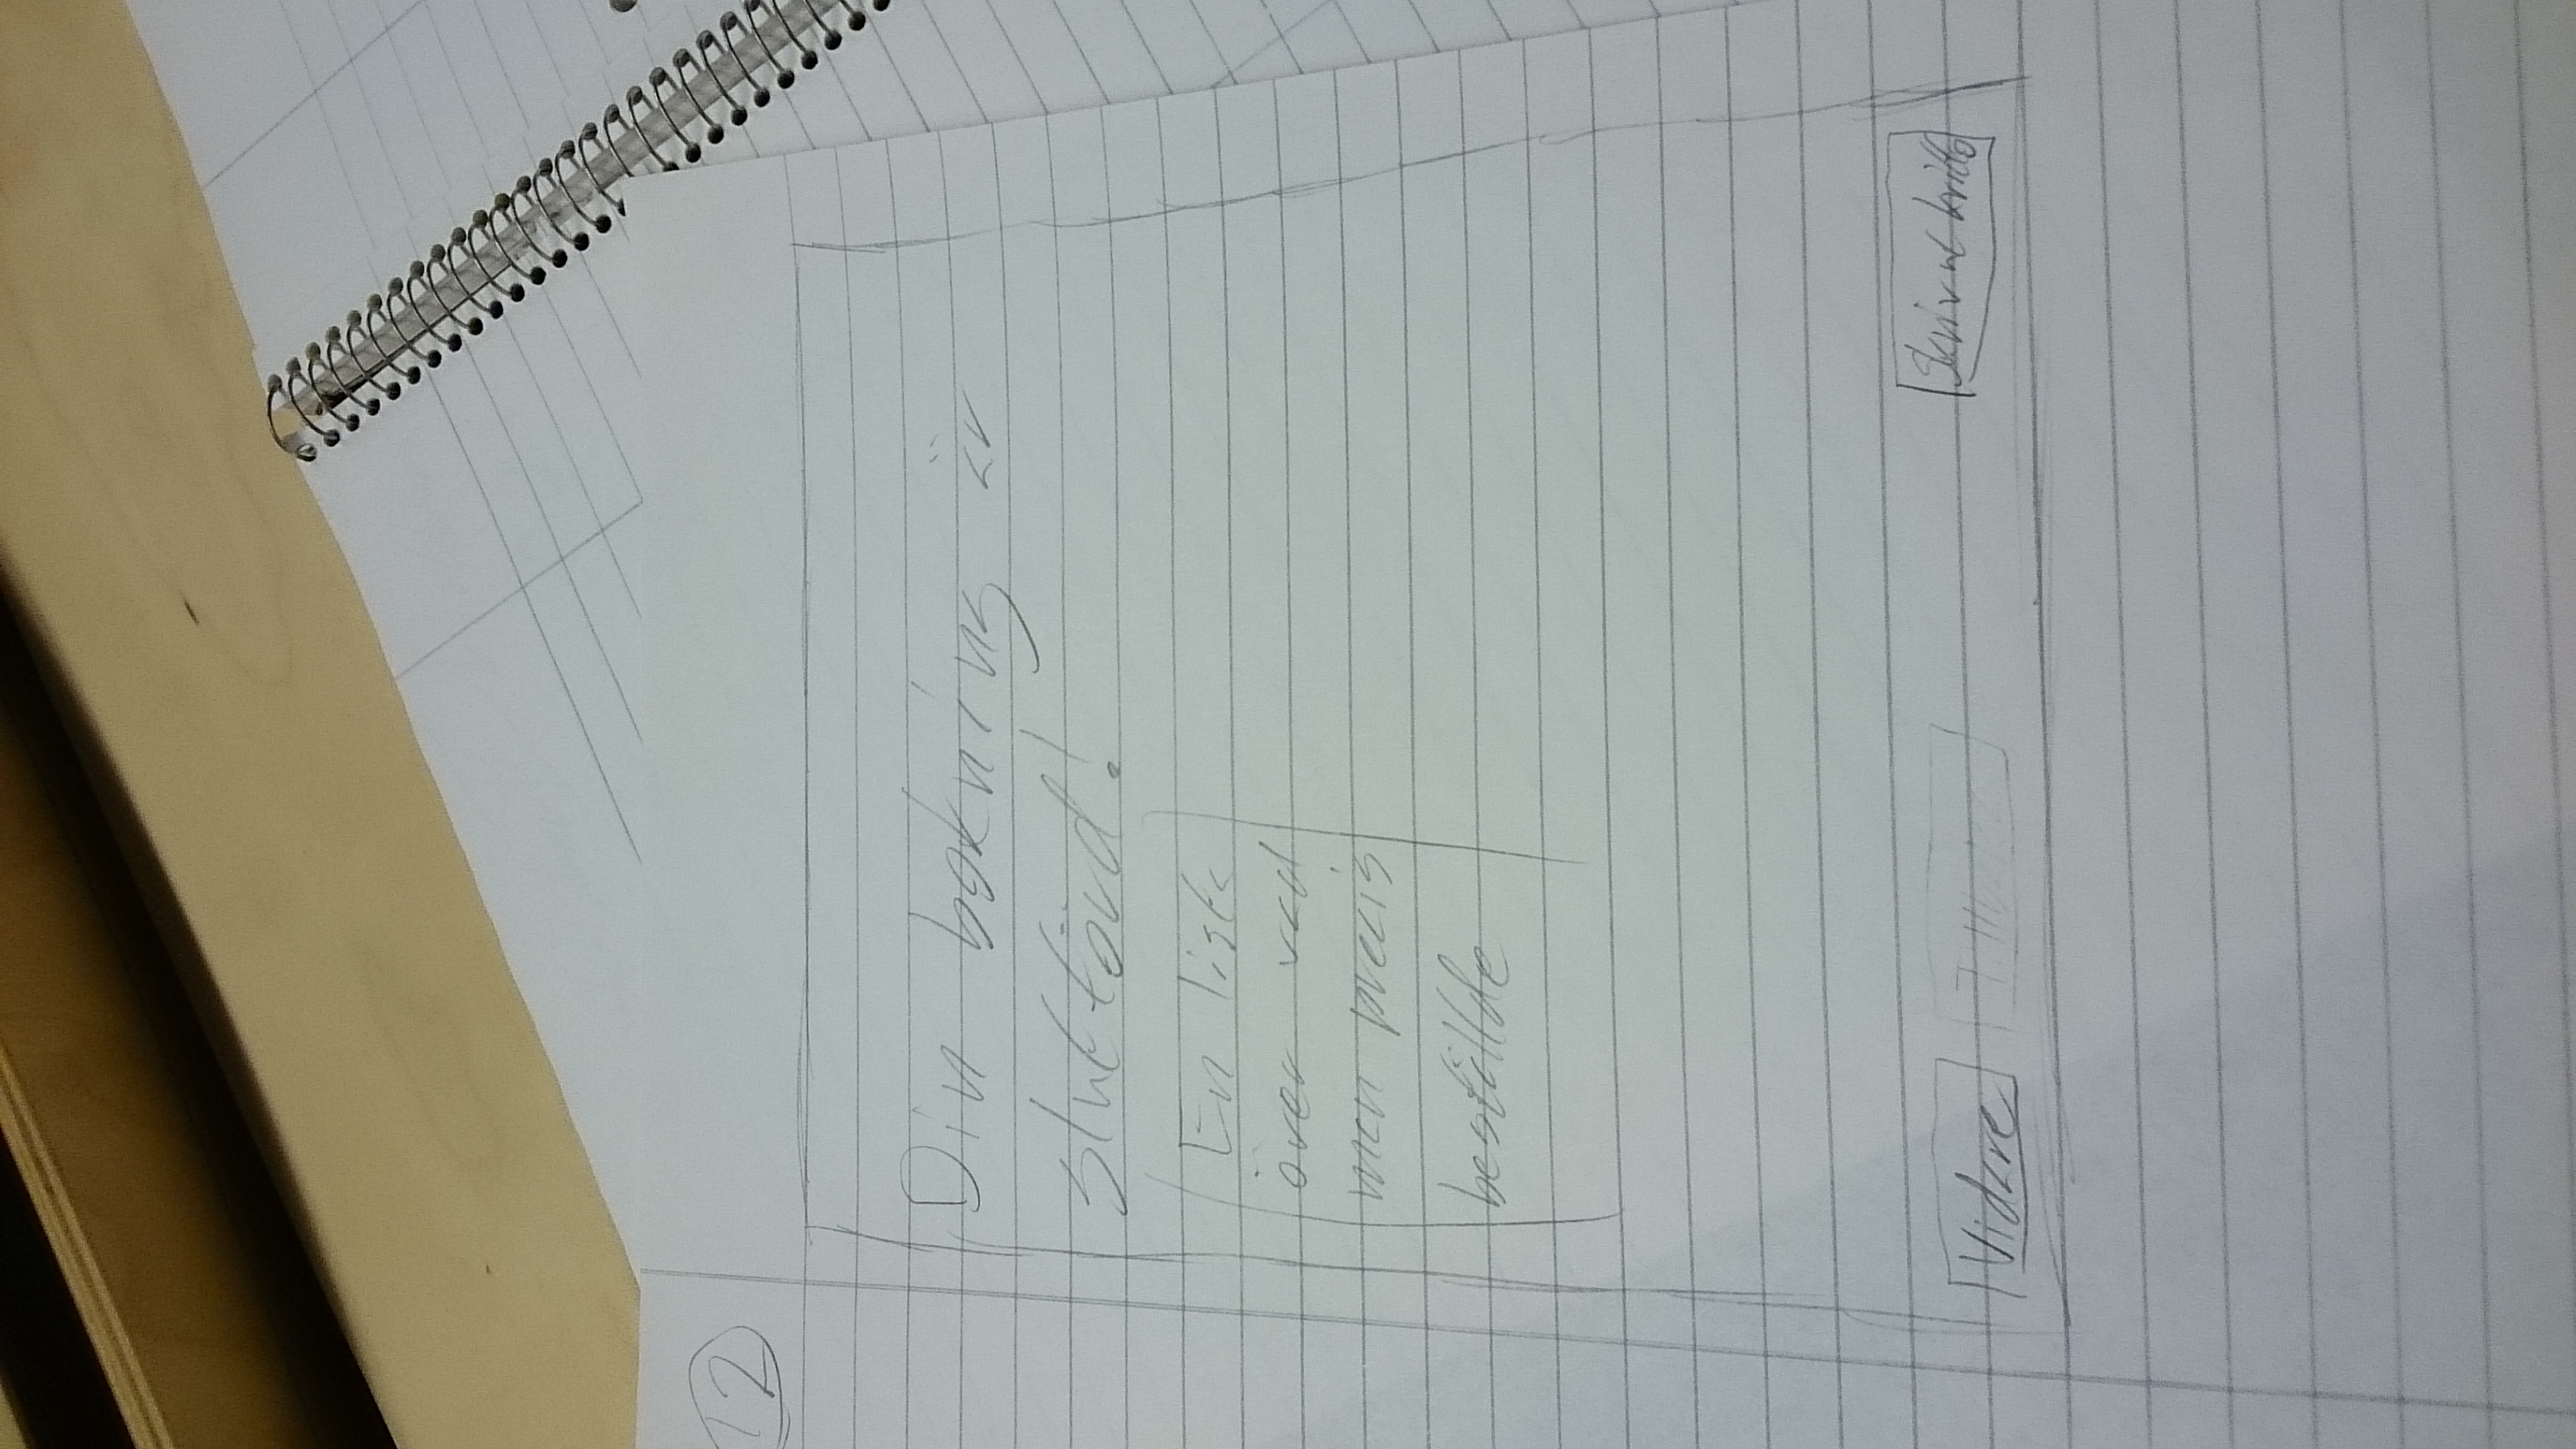 12
Din bokning är
slutförd!
En lista
över vad
man precis
beställde
Vidare
Skriv ut kvitto